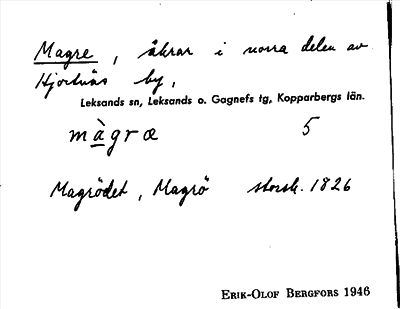 Magre, åkrar i norra delen av
Hjortnäs by,
Leksands sn, Leksands o. Gagnefs tg, Kopparbergs län.
màgræ 5
Magrödet, Magrö storsk. 1826
ERIK-OLOF BERGFORS 1946